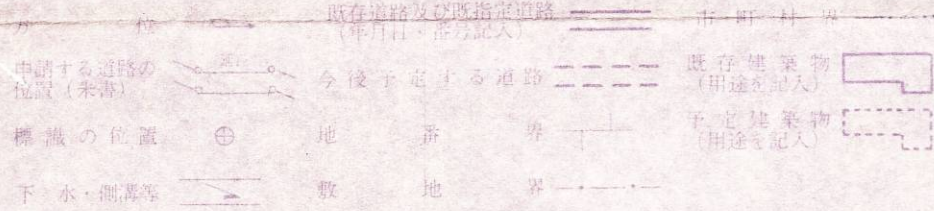 方位
既存道路及び既指定道路
(年月日・番号記入)
市町村界
申請する道路の
位置(朱書)
今後予定する道路
既存建築物
(用途を記入)
標識の位置
地番界
予定建築物
(用途を記入)
下水・側溝等
敷地界